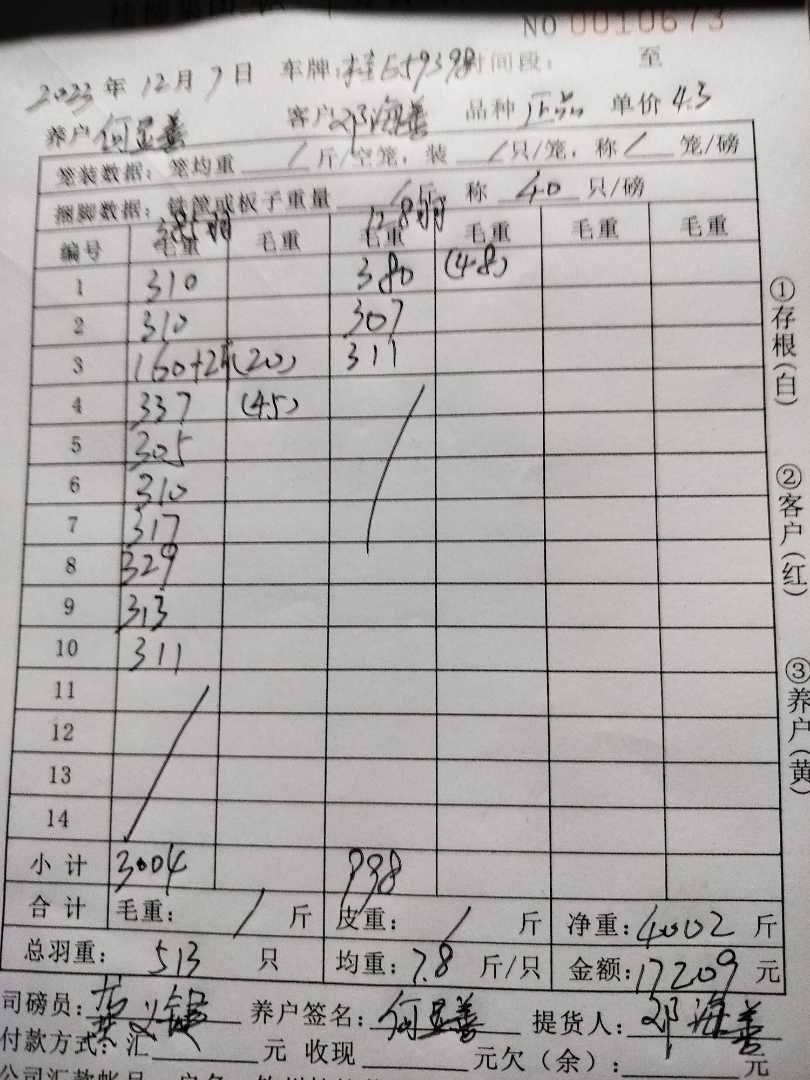 NO 0010673
2023 年 12 月 7 日 车牌: 桂 时间段: 至
养户 何显善 客户 邓海善 品种 正品 单价 4.3
笼装数据: 笼均重 / 斤/空笼, 装 / 只/笼, 称 / 笼/磅
捆脚数据: 铁笼或板子重量 / 斤 称 40 只/磅
385羽 128羽
编号 毛重 毛重 毛重 毛重 毛重 毛重
1 310 380 (48)
2 310 307
3 (20) 311
4 337 (45)
5 305
6 310
7 317
8 329
9 313
10 311
11
12
13
14
小计 3004 998
合计 毛重: / 斤 皮重: / 斤 净重: 4002 斤
总羽重: 513 只 均重: 7.8 斤/只 金额: 17209 元
司磅员: 养户签名: 何显善 提货人: 邓海善
付款方式: 汇 元 收现 元欠(余): 元
①存根(白)
②客户(红)
③养户(黄)